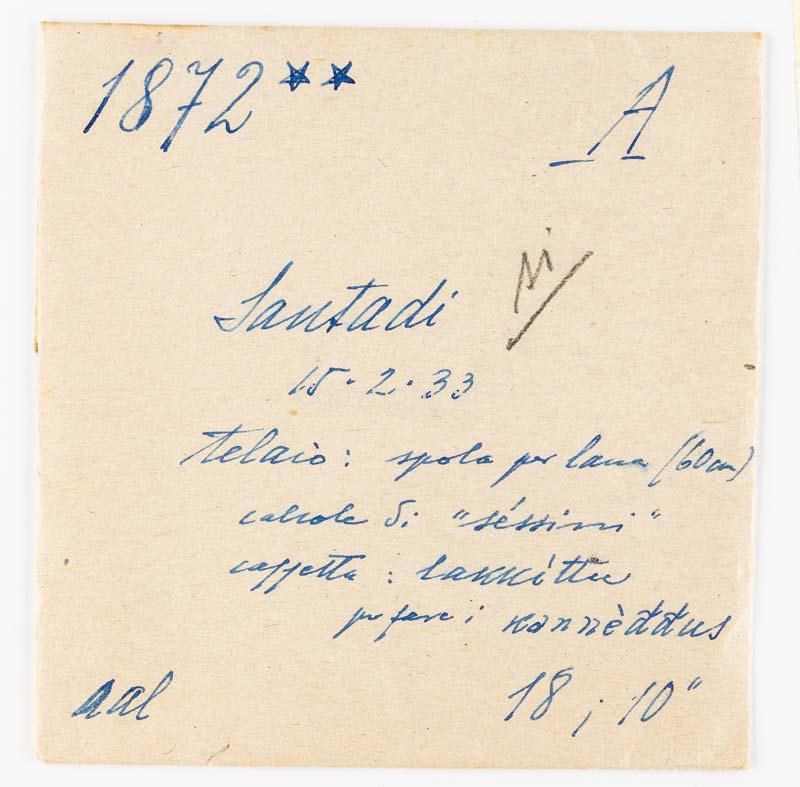 1872** A
Si
Santadi
15.2.33
telaio: spola per lana (60 cm)
calcole di "séssini"
cassetta: lakkíttu
per fare i kannèđđus
aal 18; 10"